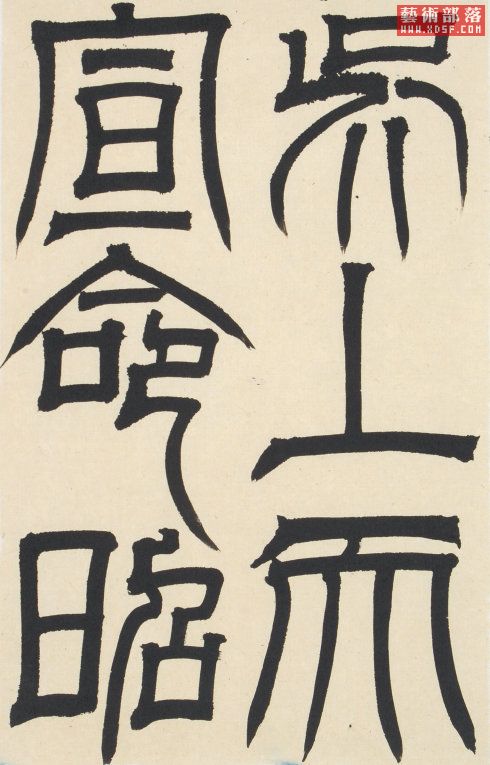 藝術部落
WWW.XDSF.COM
吳上天
宣命昭